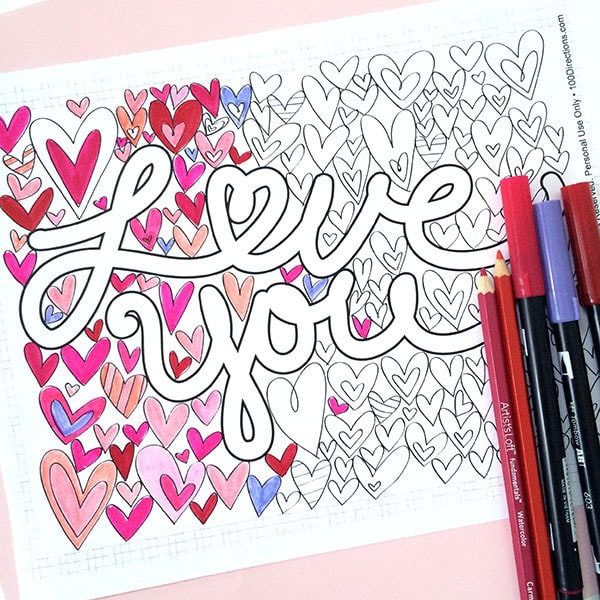 Love
you
Personal Use Only • 100Directions.com
Artist's Loft™ fundamentals™ Watercolor
ABT
603